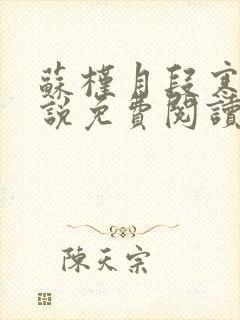 蘇槿月段寒
說免費閱讀
陳天宗